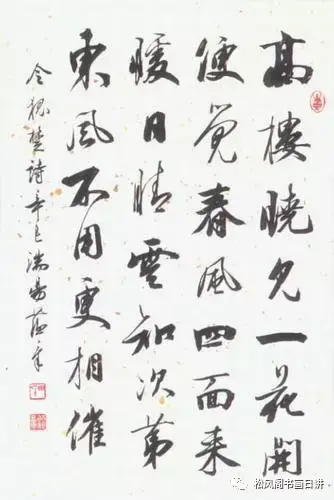 高樓曉見一花開
便觉春風四面来
暖日晴雲知次第
東風不用更相催
令狐楚詩辛巳端陽
松风阁书画日讲